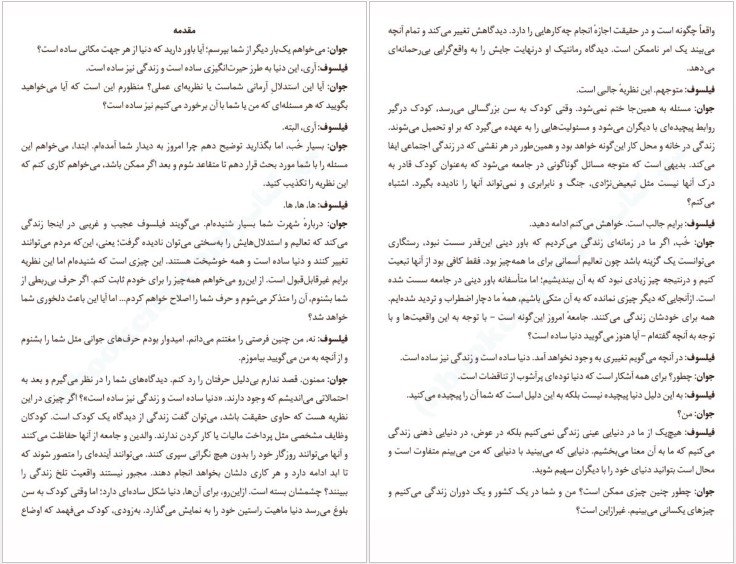 مقدمه
جوان: می‌خواهم یک‌بار دیگر از شما بپرسم؛ آیا باور دارید که دنیا از هر جهت مکانی ساده است؟
فیلسوف: آری، این دنیا به طرز حیرت‌انگیزی ساده است و زندگی نیز ساده است.
جوان: آیا این استدلال آرمانی شماست یا نظریه‌ای عملی؟ منظورم این است که آیا می‌خواهید
بگویید که هر مسئله‌ای که من یا شما با آن برخورد می‌کنیم نیز ساده است؟
فیلسوف: آری، البته.
جوان: بسیار خُب، اما بگذارید توضیح دهم چرا امروز به دیدار شما آمده‌ام. ابتدا، می‌خواهم این
مسئله را با شما مورد بحث قرار دهم تا متقاعد شوم و بعد اگر ممکن باشد، می‌خواهم کاری کنم که
این نظریه را تکذیب کنید.
فیلسوف: ها، ها، ها.
جوان: دربارهٔ شهرت شما بسیار شنیده‌ام. می‌گویند فیلسوف عجیب و غریبی در اینجا زندگی
می‌کند که تعالیم و استدلال‌هایش را به‌سختی می‌توان نادیده گرفت؛ یعنی، این‌که مردم می‌توانند
تغییر کنند و دنیا ساده است و همه خوشبخت هستند. این چیزی است که شنیده‌ام اما این نظریه
برایم غیرقابل‌قبول است. از این‌رو می‌خواهم همه‌چیز را برای خودم ثابت کنم. اگر حرف بی‌ربطی از
شما بشنوم، آن را متذکر می‌شوم و حرف شما را اصلاح خواهم کردم... اما آیا این باعث دلخوری شما
خواهد شد؟
فیلسوف: نه، من چنین فرصتی را مغتنم می‌دانم. امیدوار بودم حرف‌های جوانی مثل شما را بشنوم
و از آنچه به من می‌گویید بیاموزم.
جوان: ممنون. قصد ندارم بی‌دلیل حرفتان را رد کنم. دیدگاه‌های شما را در نظر می‌گیرم و بعد به
احتمالاتی می‌اندیشم که وجود دارند. «دنیا ساده است و زندگی نیز ساده است»؟ اگر چیزی در این
نظریه هست که حاوی حقیقت باشد، می‌توان گفت زندگی از دیدگاه یک کودک است. کودکان
وظایف مشخصی مثل پرداخت مالیات یا کار کردن ندارند. والدین و جامعه از آنها حفاظت می‌کنند
و آنها می‌توانند روزگار خود را بدون هیچ نگرانی سپری کنند. می‌توانند آینده‌ای را متصور شوند که
تا ابد ادامه دارد و هر کاری دلشان بخواهد انجام دهند. مجبور نیستند واقعیت تلخ زندگی را
ببینند؟ چشمشان بسته است. ازاین‌رو، برای آن‌ها، دنیا شکل ساده‌ای دارد؛ اما وقتی کودک به سن
بلوغ می‌رسد دنیا ماهیت راستین خود را به نمایش می‌گذارد. به‌زودی، کودک می‌فهمد که اوضاع
واقعاً چگونه است و در حقیقت اجازهٔ انجام چه‌کارهایی را دارد. دیدگاهش تغییر می‌کند و تمام آنچه
می‌بیند یک امر ناممکن است. دیدگاه رمانتیک او درنهایت جایش را به واقع‌گرایی بی‌رحمانه‌ای
می‌دهد.
فیلسوف: متوجهم. این نظریهٔ جالبی است.
جوان: مسئله به همین‌جا ختم نمی‌شود. وقتی کودک به سن بزرگسالی می‌رسد، کودک درگیر
روابط پیچیده‌ای با دیگران می‌شود و مسئولیت‌هایی را به عهده می‌گیرد که بر او تحمیل می‌شوند.
زندگی در خانه و محل کار این‌گونه خواهد بود و همین‌طور در هر نقشی که در زندگی اجتماعی ایفا
می‌کند. بدیهی است که متوجه مسائل گوناگونی در جامعه می‌شود که به‌عنوان کودک قادر به
درک آنها نیست مثل تبعیض‌نژادی، جنگ و نابرابری و نمی‌تواند آنها را نادیده بگیرد. اشتباه
می‌کنم؟
فیلسوف: برایم جالب است. خواهش می‌کنم ادامه دهید.
جوان: خُب، اگر ما در زمانه‌ای زندگی می‌کردیم که باور دینی این‌قدر سست نبود، رستگاری
می‌توانست یک گزینه باشد چون تعالیم آسمانی برای ما همه‌چیز بود. فقط کافی بود از آنها تبعیت
کنیم و درنتیجه چیز زیادی نبود که به آن بیندیشیم؛ اما متأسفانه باور دینی در جامعه سست شده
است. ازآنجایی‌که دیگر چیزی نمانده که به آن متکی باشیم. همهٔ ما دچار اضطراب و تردید شده‌ایم.
همه برای خودشان زندگی می‌کنند. جامعهٔ امروز این‌گونه است – با توجه به این واقعیت‌ها و با
توجه به آنچه گفته‌ام – آیا هنوز می‌گویید دنیا ساده است؟
فیلسوف: در آنچه می‌گویم تغییری به وجود نخواهد آمد. دنیا ساده است و زندگی نیز ساده است.
جوان: چطور؟ برای همه آشکار است که دنیا توده‌ای پرآشوب از تناقضات است.
فیلسوف: به این دلیل دنیا پیچیده نیست بلکه به این دلیل است که شما آن را پیچیده می‌کنید.
جوان: من؟
فیلسوف: هیچ‌یک از ما در دنیایی عینی زندگی نمی‌کنیم بلکه در عوض، در دنیایی ذهنی زندگی
می‌کنیم که ما به آن معنا می‌بخشیم. دنیایی که می‌بینید با دنیایی که من می‌بینم متفاوت است و
محال است بتوانید دنیای خود را با دیگران سهیم شوید.
جوان: چطور چنین چیزی ممکن است؟ من و شما در یک کشور و یک دوران زندگی می‌کنیم و
چیزهای یکسانی می‌بینیم. غیرازاین است؟